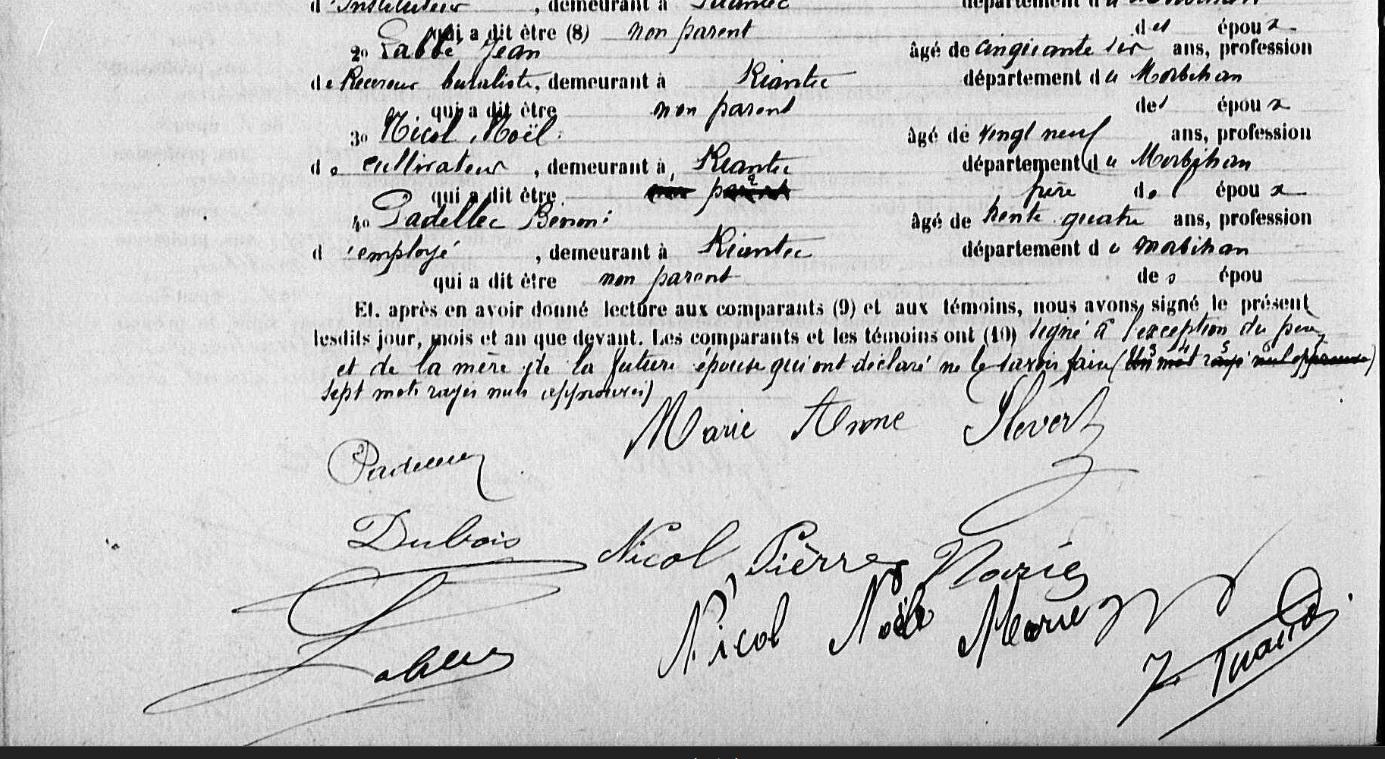 d'Instituteur, demeurant à Riantec département du Morbihan
qui a dit être (8) non parent des époux
2º Labbé Jean âgé de cinquante six ans, profession
de Receveur buraliste, demeurant à Riantec département du Morbihan
qui a dit être non parent des époux
3º Nicol Noël âgé de vingt neuf ans, profession
de cultivateur, demeurant à Riantec département du Morbihan
qui a dit être non parent frère de l'époux
4º Padellec Benoni âgé de trente quatre ans, profession
d'employé, demeurant à Riantec département du Morbihan
qui a dit être non parent des épou
Et, après en avoir donné lecture aux comparants (9) et aux témoins, nous avons signé le présent
lesdits jour, mois et an que devant. Les comparants et les témoins ont (10) signé à l'exception du père
et de la mère de la future épouse qui ont déclaré ne le savoir faire (Un mot rayé nul approuvé)
sept mots rayés nuls approuvés)
Marie Anne Plevert
Padellec
Dubois Nicol Pierre Marie
Nicol Noël Marie
Labbé